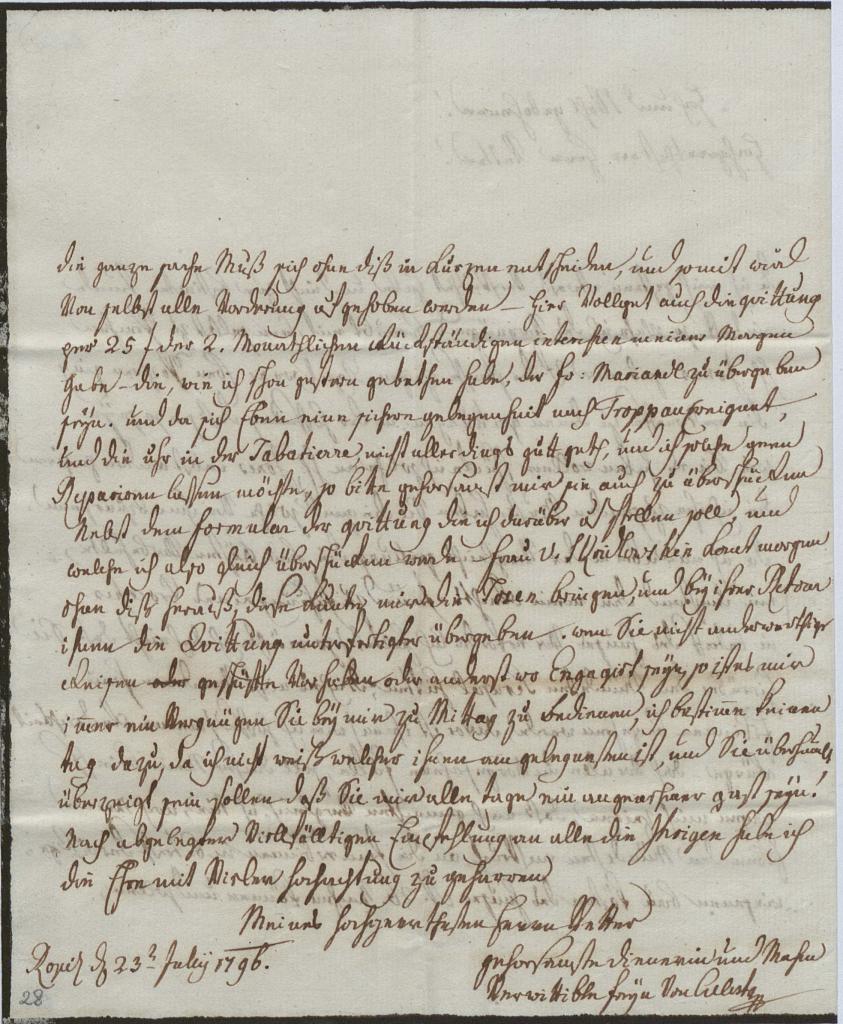 die ganze sache Muß sich ohne diß in kurzen entscheiden, und somit wird
Von selbst alle Vorderung aufgehoben werden – hier Vollget auch die quittung
per 25 f der 2. Monathlichen Rückständigen interessen meiner Morgen
gabe – die, wie ich schon gestern gebethen habe, der Fr: Mariandl zu übergeben
seyn. und da sich Eben eine sichere gelegenheit nach Troppau ereignet,
und die uhr in der Tabatiere nicht allerdings gutt geth, und ich solche gern
Reparieren lassen möchte, so bitte gehorsamst mir sie auch zu überschücken
Nebst dem formular der quittung die ich darüber aus stellen soll, und
welche ich also gleich überschücken werde – Frau v. komt morgen
ohne diß herauß, diese kunte mir die Dosen bringen, und bey ihrer Retour
ihnen die Quittung unterfertigter übergeben. wen Sie nicht anderwerthige
Reisen oder geschäffte Vorhaben oder anderst wo Engagirt seyn, so ist es mir
immer ein Vergnügen Sie bey mir zu Mittag zu bedienen, ich bestimme keinen
tag dazu, da ich nicht weiß welcher ihnen am gelegensten ist, und Sie überhaubt
überzeigt sein sollen daß Sie mir alle tage ein angenehmer gast seyn!
Nach abgelegter Villfälltigen Empfehlung an alle die Ihrigen habe ich
die Ehre mit Vieler hochachtung zu geharren
Meines hochgeerthesten Herrn Vetter
Ropitz d 23t July 1796.
gehorsamste dienerin und Mahm
Verwittible freyn Von
28